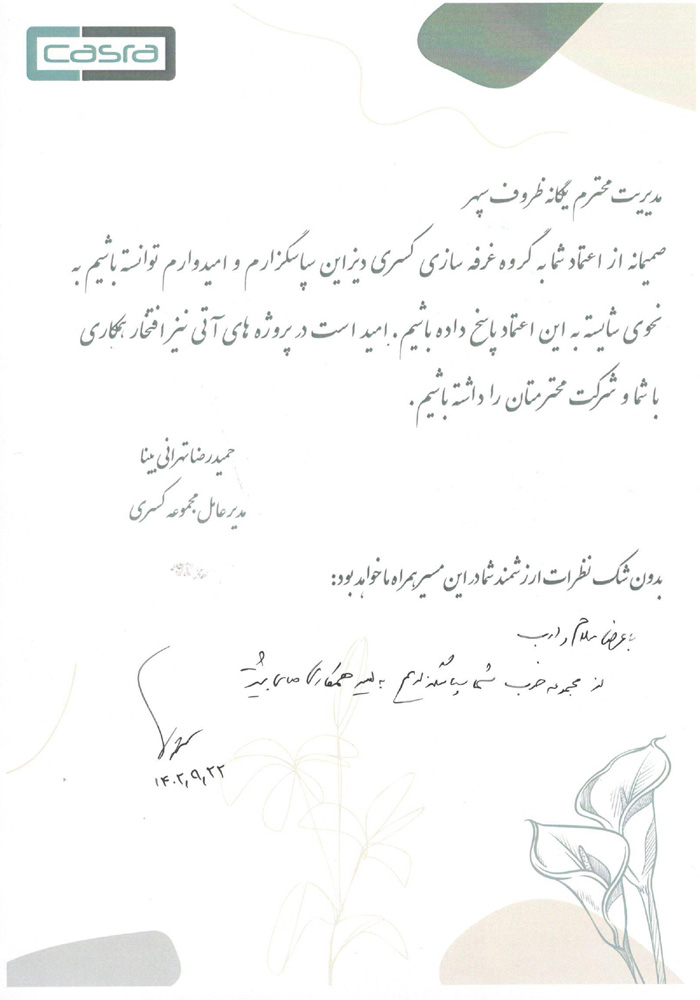 casra
مدیریت محترم یگانه ظروف سپهر
صمیمانه از اعتماد شما به گروه غرفه سازی کسری دیزاین سپاسگزارم و امیدوارم توانسته باشیم به
نحوی شایسته به این اعتماد پاسخ داده باشیم. امید است در پروژه های آتی نیز افتخار همکاری
با شما و شرکت محترمتان را داشته باشیم.
حمیدرضا تهرانی بینا
مدیرعامل مجموعه کسری
بدون شک نظرات ارزشمند شما در این مسیر همراه ما خواهد بود:
با عرض سلام و ادب
از مجموعه خوب شما سپاسگذاریم به امید همکاری های بیشتر
۱۴۰۲,۹,۲۲